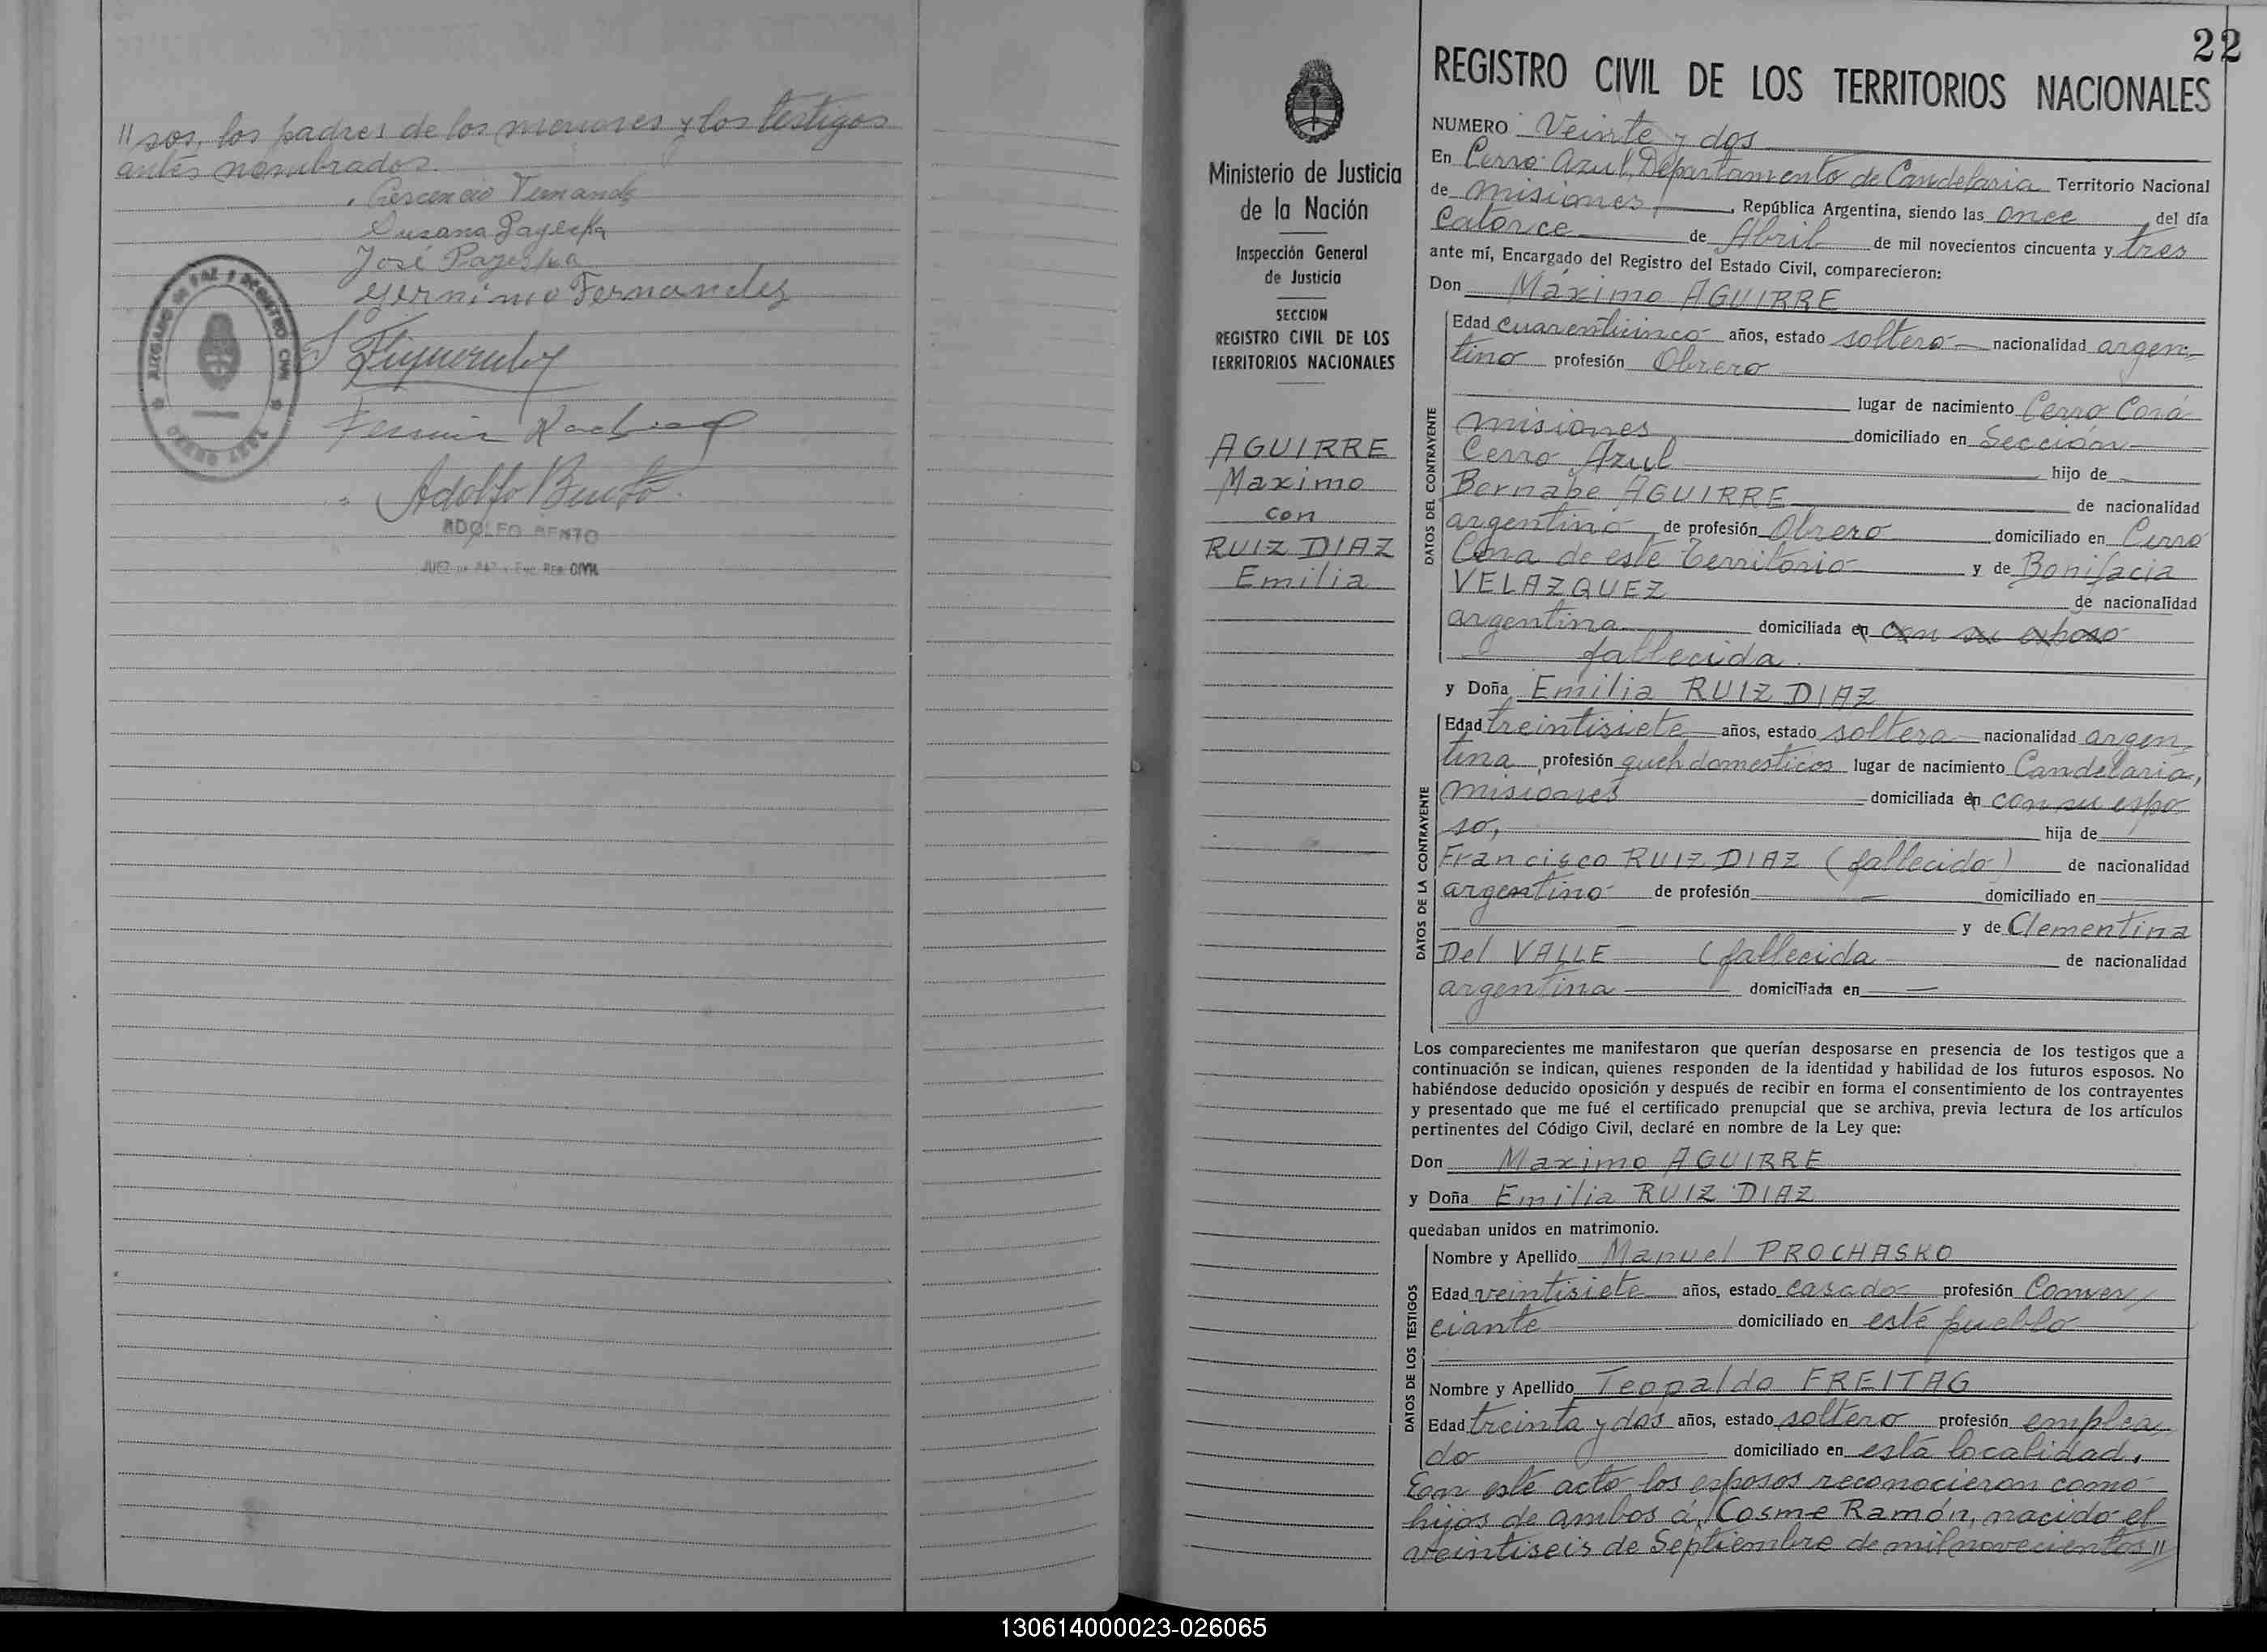 "sos, los padres de los menores y los testigos
antes nombrados.
Susana Pagerka
José Pagerka
Gernimo Fernandez
Adolfo Bento
ADOLFO BENTO
JUEZ DE PAZ y ENC. REG. CIVIL
22
REGISTRO CIVIL DE LOS TERRITORIOS NACIONALES
Ministerio de Justicia
de la Nación
Inspección General
de Justicia
SECCION
REGISTRO CIVIL DE LOS
TERRITORIOS NACIONALES
AGUIRRE
Maximo
con
RUIZ DIAZ
Emilia
NUMERO Veinte y dos
En Cerro Azul, Departamento de Candelaria Territorio Nacional
de Misiones, República Argentina, siendo las once del día
Catorce de Abril de mil novecientos cincuenta y tres
ante mí, Encargado del Registro del Estado Civil, comparecieron:
Don Máximo AGUIRRE
DATOS DEL CONTRAYENTE
Edad cuarenticinco años, estado soltero nacionalidad argen-
tino profesión Obrero
lugar de nacimiento Cerro Corá
Misiones domiciliado en Sección
Cerro Azul hijo de
Bernabe AGUIRRE de nacionalidad
argentino de profesión Obrero domiciliado en Cerro
Cora de este Territorio y de Bonifacia
VELAZQUEZ de nacionalidad
argentina domiciliada en con su esposo
fallecida.
y Doña Emilia RUIZ DIAZ
DATOS DE LA CONTRAYENTE
Edad treintisiete años, estado soltera nacionalidad argen-
tina profesión queh domesticos lugar de nacimiento Candelaria,
Misiones domiciliada en con su espo
so, hija de
Francisco RUIZ DIAZ (fallecido) de nacionalidad
argentino de profesión — domiciliado en
— y de Clementina
Del VALLE (fallecida de nacionalidad
argentina domiciliada en —
Los comparecientes me manifestaron que querían desposarse en presencia de los testigos que a
continuación se indican, quienes responden de la identidad y habilidad de los futuros esposos. No
habiéndose deducido oposición y después de recibir en forma el consentimiento de los contrayentes
y presentado que me fué el certificado prenupcial que se archiva, previa lectura de los artículos
pertinentes del Código Civil, declaré en nombre de la Ley que:
Don Maximo AGUIRRE
y Doña Emilia RUIZ DIAZ
quedaban unidos en matrimonio.
DATOS DE LOS TESTIGOS
Nombre y Apellido Manuel PROCHASKO
Edad veintisiete años, estado casado profesión Comer/
ciante domiciliado en este pueblo
Nombre y Apellido Teopaldo FREITAG
Edad treinta y dos años, estado soltero profesión emplea
do domiciliado en esta localidad.
En este acto los esposos reconocieron como
hijos de ambos á: Cosme Ramón, nacido el
veintiseis de Septiembre de mil novecientos"
130614000023-026065